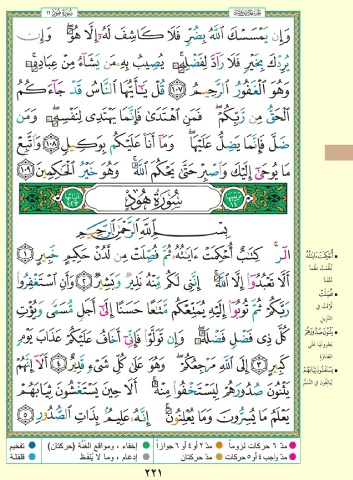 سُورَةُ هُودٍ ١١
وَإِن يَمْسَسْكَ اللَّهُ بِضُرٍّ فَلَا كَاشِفَ لَهُ إِلَّا هُوَ وَإِن
يُرِدْكَ بِخَيْرٍ فَلَا رَآدَّ لِفَضْلِهِ يُصِيبُ بِهِ مَن يَشَآءُ مِنْ عِبَادِهِ
وَهُوَ الْغَفُورُ الرَّحِيمُ ١٠٧ قُلْ يَٰٓأَيُّهَا النَّاسُ قَدْ جَآءَكُمُ
الْحَقُّ مِن رَّبِّكُمْ فَمَنِ اهْتَدَىٰ فَإِنَّمَا يَهْتَدِى لِنَفْسِهِ وَمَن
ضَلَّ فَإِنَّمَا يَضِلُّ عَلَيْهَا وَمَآ أَنَا عَلَيْكُم بِوَكِيلٍ ١٠٨ وَاتَّبِعْ
مَا يُوحَىٰٓ إِلَيْكَ وَاصْبِرْ حَتَّىٰ يَحْكُمَ اللَّهُ وَهُوَ خَيْرُ الْحَٰكِمِينَ ١٠٩
سُورَةُ هُودٍ
بِسْمِ اللَّهِ الرَّحْمَٰنِ الرَّحِيمِ
الٓر كِتَٰبٌ أُحْكِمَتْ ءَايَٰتُهُ ثُمَّ فُصِّلَتْ مِن لَّدُنْ حَكِيمٍ خَبِيرٍ ١
أَلَّا تَعْبُدُوٓا إِلَّا اللَّهَ إِنَّنِى لَكُم مِّنْهُ نَذِيرٌ وَبَشِيرٌ ٢ وَأَنِ اسْتَغْفِرُوا
رَبَّكُمْ ثُمَّ تُوبُوٓا إِلَيْهِ يُمَتِّعْكُم مَّتَٰعًا حَسَنًا إِلَىٰٓ أَجَلٍ مُّسَمًّى وَيُؤْتِ
كُلَّ ذِى فَضْلٍ فَضْلَهُ وَإِن تَوَلَّوْا فَإِنِّىٓ أَخَافُ عَلَيْكُمْ عَذَابَ يَوْمٍ
كَبِيرٍ ٣ إِلَى اللَّهِ مَرْجِعُكُمْ وَهُوَ عَلَىٰ كُلِّ شَىْءٍ قَدِيرٌ ٤ أَلَآ إِنَّهُمْ
يَثْنُونَ صُدُورَهُمْ لِيَسْتَخْفُوا مِنْهُ أَلَا حِينَ يَسْتَغْشُونَ ثِيَابَهُمْ
يَعْلَمُ مَا يُسِرُّونَ وَمَا يُعْلِنُونَ إِنَّهُ عَلِيمٌ بِذَاتِ الصُّدُورِ ٥
أُحْكِمَتْ ءَايَٰتُهُ
فُصِّلَتْ
يَثْنُونَ صُدُورَهُمْ
يَسْتَغْشُونَ ثِيَابَهُمْ
مدّ ٦ حركات لزوماً مدّ ٢ أو ٤ أو ٦ جوازاً إخفاء، ومواقع الغُنَّة (حركتان) تفخيم
مدّ واجب ٤ أو ٥ حركات مدّ حركتان إدغام، وما لا يُلفَظ قلقلة
٢٢١